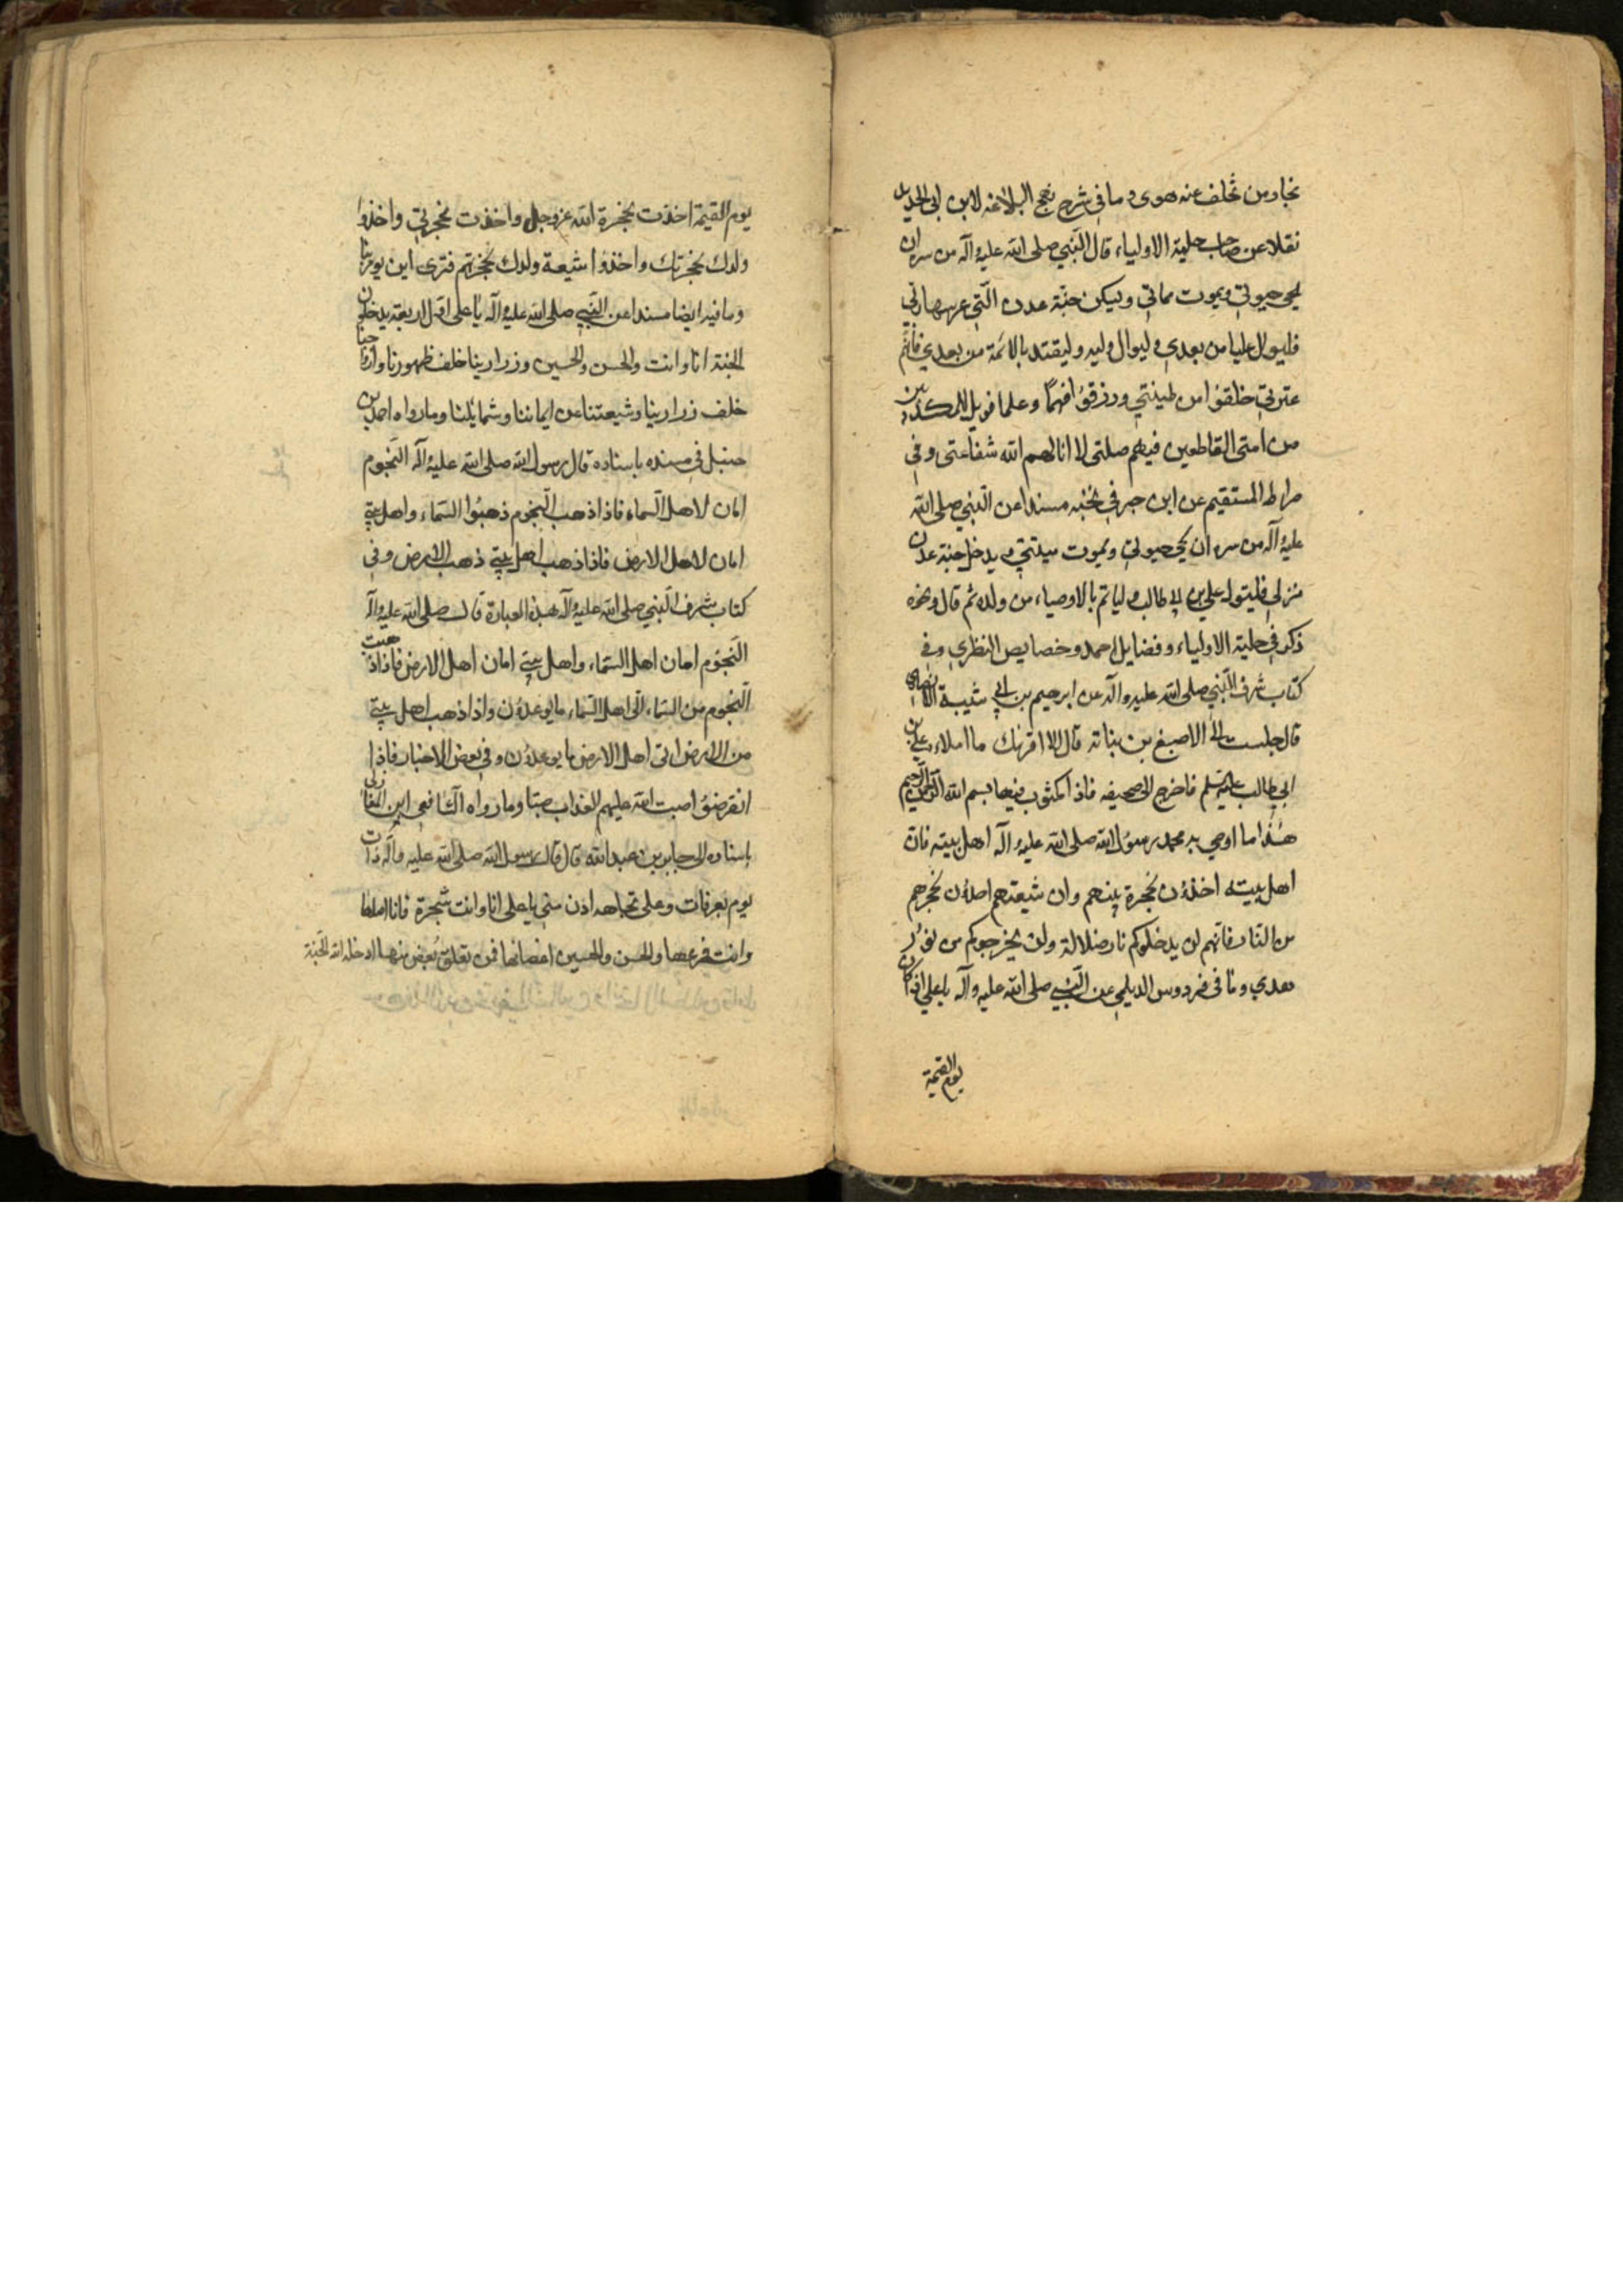 نجا ومن تخلف عنه هوى وما في شرح نهج البلاغه لابن ابي الحديد
نقلا عن صاحب حلية الاولياء قال النبي صلى الله عليه وآله من سره ان
يحيى حيوتي ويموت مماتي ويسكن جنة عدن التي غرسها ربي
فليوال عليا من بعدي وليوال وليه وليقتد بالائمة من بعدي فانهم
عترتي خلقوا من طينتي ورزقوا فهما وعلما فويل للمكذبين
من امتي القاطعين فيهم صلتي لا انالهم الله شفاعتي وفي
صراط المستقيم عن ابن جبر في نخبه مسندا عن النبي صلى الله
عليه وآله من سره ان يحيى حيوتي ويموت ميتتي ويدخل جنة عدن
منزلي فليتول علي بن ابي طالب وليأتم بالاوصياء من ولده ثم قال ونحوه
ذكر في حلية الاولياء وفضايل احمد وخصايص النظري وفي
كتاب شرف النبي صلى الله عليه وآله عن ابرهيم بن ابي شيبة الانصاري
قال جلست الى الاصبغ بن نباته قال الا اقرئك ما املاه علي بن
ابي طالب عليه السلم فاخرج الى صحيفه فاذا مكتوب فيها بسم الله الرحمن الرحيم
هذا ما اوصي به محمد رسول الله صلى الله عليه وآله اهل بيته فان
اهل بيته اخذون بحجزة نبيهم وان شيعتهم اخذون بحجزهم
من النار فانهم لن يدخلوكم نار ضلالة ولن يخرجوكم من نور
هدي وما في فردوس الديلمي عن النبي صلى الله عليه وآله يا علي اذا كان
يوم القيمة
يوم القيمة اخذت بحجزة الله عز وجل واخذت بحجزتي واخذوا
ولدك بحجزتك واخذوا شيعة ولدك بحجزتهم فترى اين يومر بنا
وما فيه ايضا مسندا عن النبي صلى الله عليه وآله يا علي اول اربعة يدخلون
الجنة انا وانت والحسن والحسين وذرارينا خلف ظهورنا وازواجنا
خلف ذرارينا وشيعتنا عن ايماننا وشمايلنا وما رواه احمد بن
حنبل في مسنده باسناده قال رسول الله صلى الله عليه وآله النجوم
امان لاهل السماء فاذا ذهب النجوم ذهبوا السماء واهل بيتي
امان لاهل الارض فاذا ذهب اهل بيتي ذهب الارض وفي
كتاب شرف النبي صلى الله عليه وآله هذه العبارة قال صلى الله عليه وآله
النجوم امان اهل السماء واهل بيتي امان اهل الارض فاذا ذهبت
النجوم من السماء اتى اهل السماء ما يوعدون واذا ذهب اهل بيتي
من الارض اتى اهل الارض ما يوعدون وفي بعض الاخبار فاذا
انقرضوا صب الله عليهم العذاب صبا وما رواه الشافعي ابن المغازلي
باسناده الى جابر بن عبد الله قال قال رسول الله صلى الله عليه وآله ذات
يوم بعرفات وعلي تجاهه ادن مني يا علي انا وانت شجرة فانا اصلها
وانت فرعها والحسن والحسين اغصانها فمن تعلق بغصن منها ادخله الله الجنة